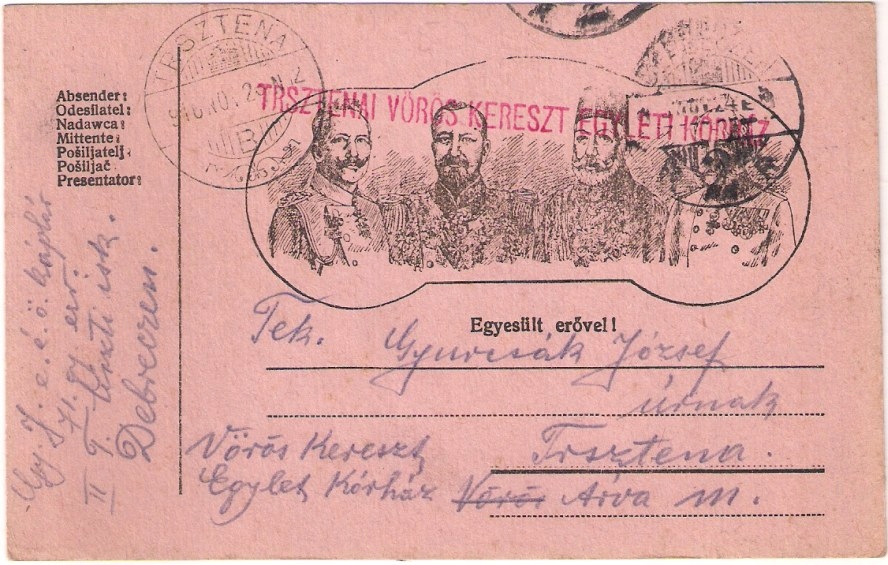 TRSZTENA
916 NOV 24 N 2
B
TRSZTENAI VÖRÖS KERESZT EGYLETI KÓRHÁZ
Absender:
Odesílatel:
Nadawca:
Mittente:
Pošiljatelj:
Pošiljač
Presentator:
Egyesült erővel!
Tek. Gyurcsák József
úrnak
Trsztena.
Vörös Kereszt
Egylet Kórház Vörös Árva m.
71. gy. ezr.
II tiszti isk.
Debreczen.